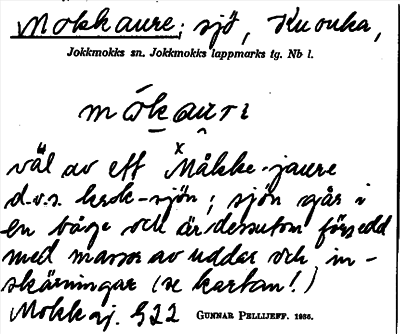 Mokkaure; sjö, Kuouka,
Jokkmokks sn. Jokkmokks lappmarks tg. Nb l.
mókauri
väl av ett ˣMåkke-jaure
d.v.s. krok-sjön; sjön går i
en båge och är dessutom försedd
med massor av uddar och in-
skärningar (se kartan!)
Mokkaj. GJJ
GUNNAR PELLIJEFF. 1986.